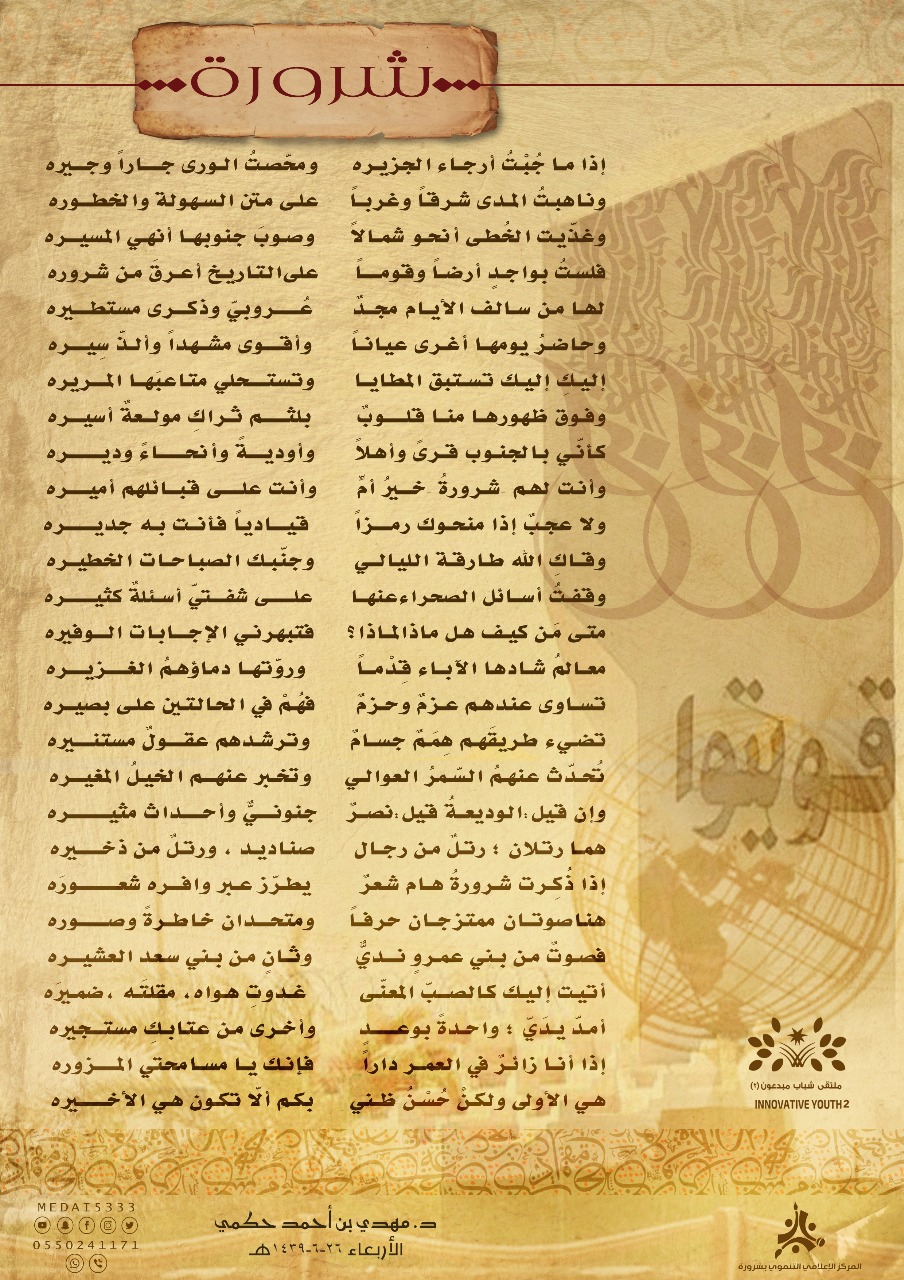 شرورة
إذا ما جُبْتُ أرجاء الجزيره ومحّصتُ الورى جاراً وجيره
وناهبتُ المدى شرقاً وغرباً على متن السهولة والخطوره
وغذّيت الخُطى أنحو شمالاً وصوبَ جنوبها أنهي المسيره
فلستُ بواجدٍ أرضاً وقوماً على التاريخ أعرقَ من شروره
لها من سالف الأيام مجدٌ عُروبيّ وذكرى مستطيره
وحاضرُ يومها أغرى عياناً وأقوى مشهداً وألذّ سِيره
إليكِ إليك تستبق المطايا وتستحلي متاعبَها المريره
وفوق ظهورها منا قلوبٌ بلثم ثراكِ مولعةٌ أسيره
كأنّي بالجنوب قرىً وأهلاً وأوديةً وأنحاءً وديره
وأنت لهم شرورةُ خيرُ أمٍّ وأنت على قبائلهم أميره
ولا عجبٌ إذا منحوك رمزاً قيادياً فأنت به جديره
وقاكِ الله طارقة الليالي وجنّبك الصباحات الخطيره
وقفتُ أسائل الصحراء عنها على شفتيّ أسئلةٌ كثيره
متى مَن كيف هل ماذا لماذا؟ فتبهرني الإجابات الوفيره
معالمُ شادها الآباء قِدْماً وروّتها دماؤهمُ الغزيره
تساوى عندهم عزمٌ وحزمٌ فهُمْ في الحالتين على بصيره
تضيء طريقَهم هِمَمٌ جسامٌ وترشدهم عقولٌ مستنيره
تُحدّث عنهمُ السّمرُ العوالي وتخبر عنهم الخيلُ المغيره
وإن قيل: الوديعةُ قيل: نصرٌ جنوبيٌّ وأحداث مثيره
هما رتلان ؛ رتلٌ من رجال صناديد ، ورتلٌ من ذخيره
إذا ذُكرت شرورةُ هام شعرٌ يطرّز عبر وافره شعورَه
هنا صوتان ممتزجان حرفاً ومتحدان خاطرةً وصوره
فصوتٌ من بني عمرو نديٌّ وثانٍ من بني سعد العشيره
أتيت إليك كالصبّ المعنّى غدوتِ هواه، مقلتَه ،ضميرَه
أمدّ يدَيّ ؛ واحدةً بوعدٍ وأخرى من عتابكِ مستجيره
إذا أنا زائرٌ في العمر داراً فإنك يا مسامحتي المزوره
هي الأولى ولكنْ حُسْنُ ظني بكم ألّا تكون هي الأخيره
قوينوا
ملتقى شباب مبدعون (٢)
INNOVATIVE YOUTH 2
د. مهدي بن أحمد حكمي
الأربعاء ٢٦-٦-١٤٣٩هـ
MEDAT5333
0550241171
المركز الإعلامي التنموي بشرورة